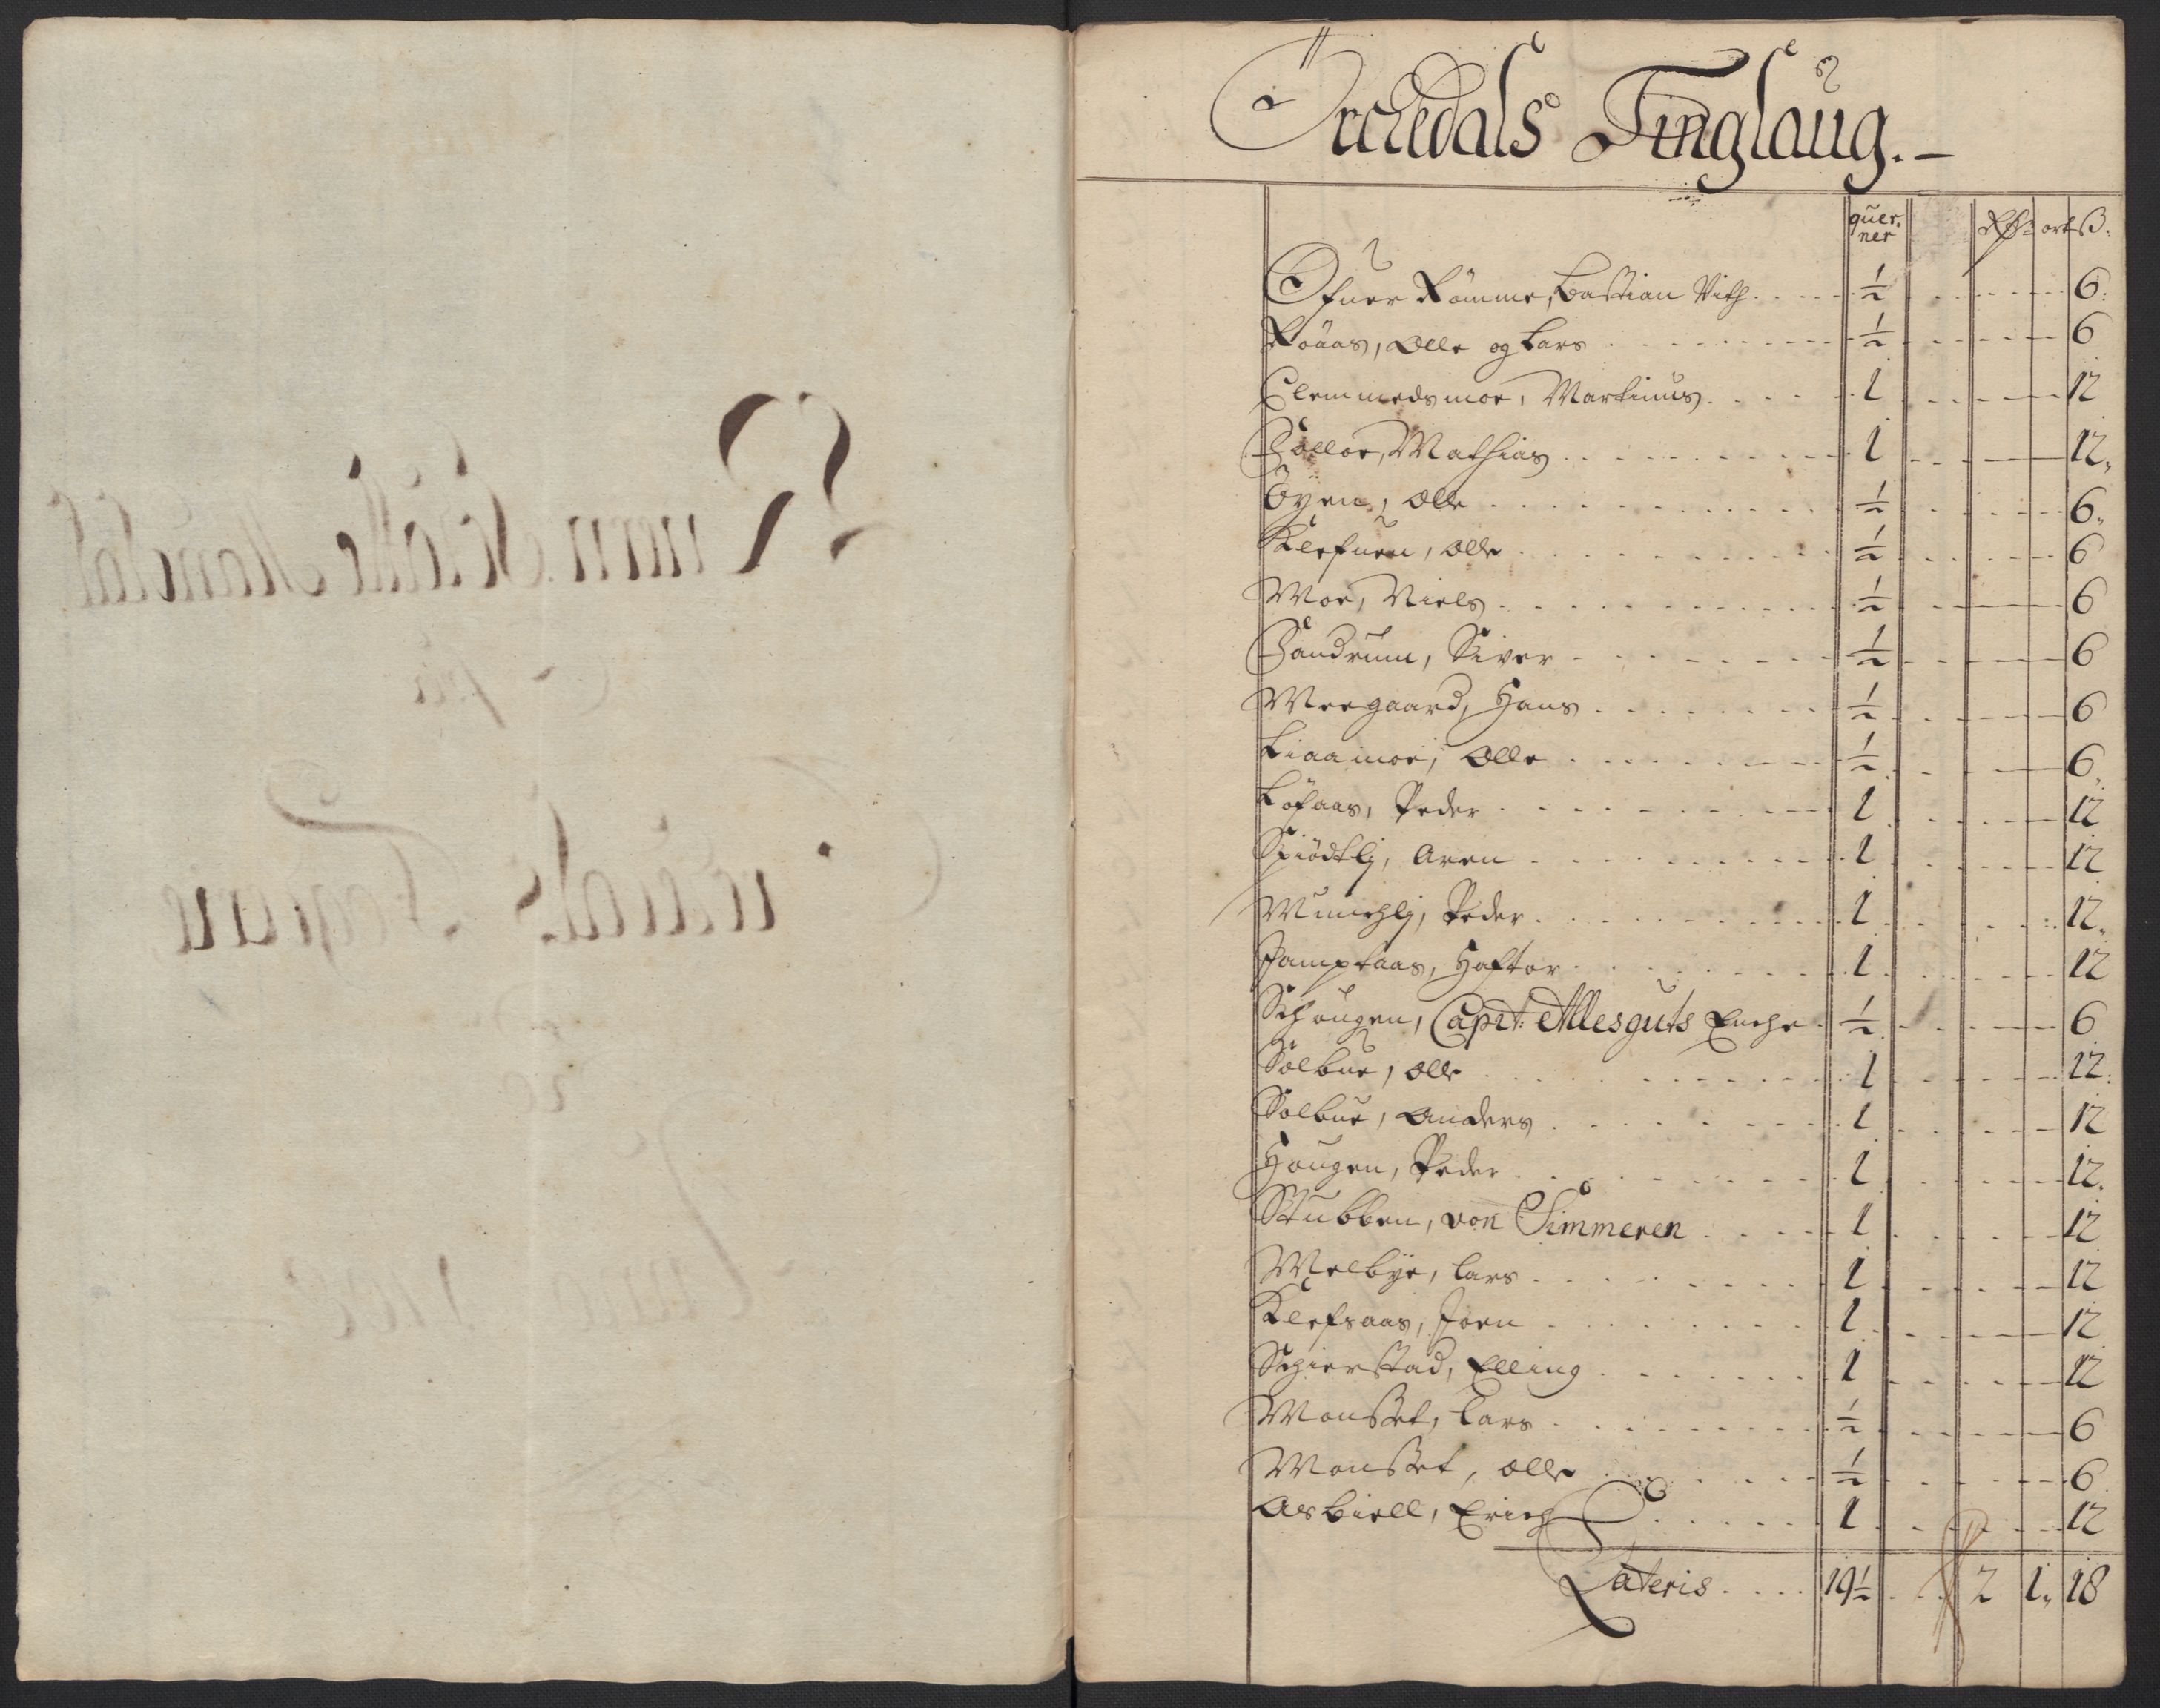 Orchedals Tinglaug.
quer-
ner Rdr ort ß:
Ofuer Römme, Bastian Vith 1/2 6:
Röaas, Olle og Lars 1/2 6
Clemmedsmoe, Martinus 1 12
Solloe, Mathias 1 12
Öyen, Olle 1/2 6
Klefuen, Olle 1/2 6
Moe, Niels 1/2 6
Sandrum, Siver 1/2 6
Meegaard, Hans 1/2 6
Liaamoe, Olle 1/2 6
Lofaas, Peder 1 12
Spiödtlj, Aren 1 12
Munchlj, Peder 1 12
Jamptaas, Haftor 1 12
Schougen, Capit: Allesguts Enche 1/2 6
Solbue, Olle 1 12
Solbue, Anders 1 12
Hougen, Peder 1 12
Stubben, von Simmeren 1 12
Melbye, Lars 1 12
Klefsaas, Joen 1 12
Schierstad, Elling 1 12
Monset, Lars 1/2 6
Monset, Olle 1/2 6
Asbiell, Erich 1 12
Lateris 19 1/2 2 1 18